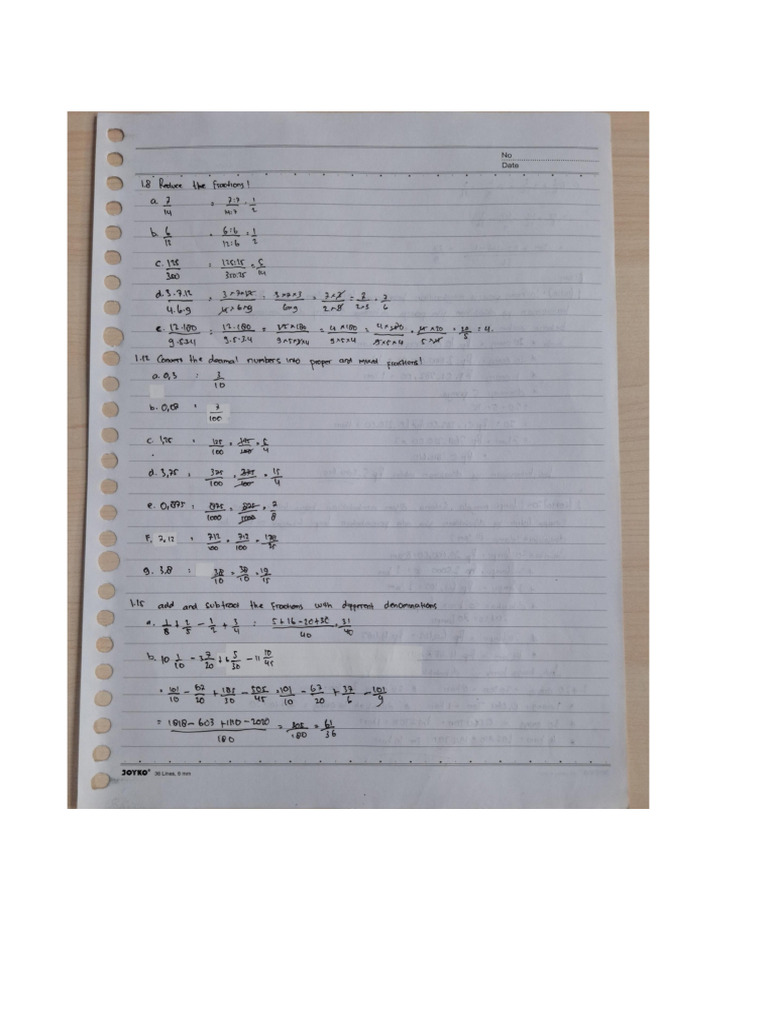 No
Date
1.8 Reduce the fractions!
a. 7/14 = 7:7/14:7 = 1/2
b. 6/12 = 6:6/12:6 = 1/2
c. 125/300 : 125:25/350:25 = 5/14
d. 3.7.12/4.6.9
e. 12.180/9.5.3.4 : 12.180/9.5.3.4 = 4×180/9×5×4 = 20/5 = 4.
1.12 Convert the decimal numbers into proper and mixed fractions!
a. 0,3 : 3/10
b. 0,03 : 3/100
c. 1,25 : 125/100 = 125/100 = 5/4
d. 3,75 : 375/100 = 375/100 = 15/4
e. 0,875 : 875/1000 = 875/1000 = 7/8
F. 7,12 : 712/100 = 712/100 = 178/25
g. 3.8 : 38/10 = 38/10 = 19/15
1.15 add and subtract the fractions with different denominations
a. 1/8 + 2/5 - 1/2 + 3/4 : 5+16-20+30/40 = 31/40
b. 10 1/10 - 3 7/20 + 6 5/30 - 11 10/45
= 101/10 - 67/20 + 185/30 - 505/45 = 101/10 - 67/20 + 37/6 - 101/9
= 1818-603+1110-2020/180 = 305/180 = 61/36
JOYKO 36 Lines, 8 mm